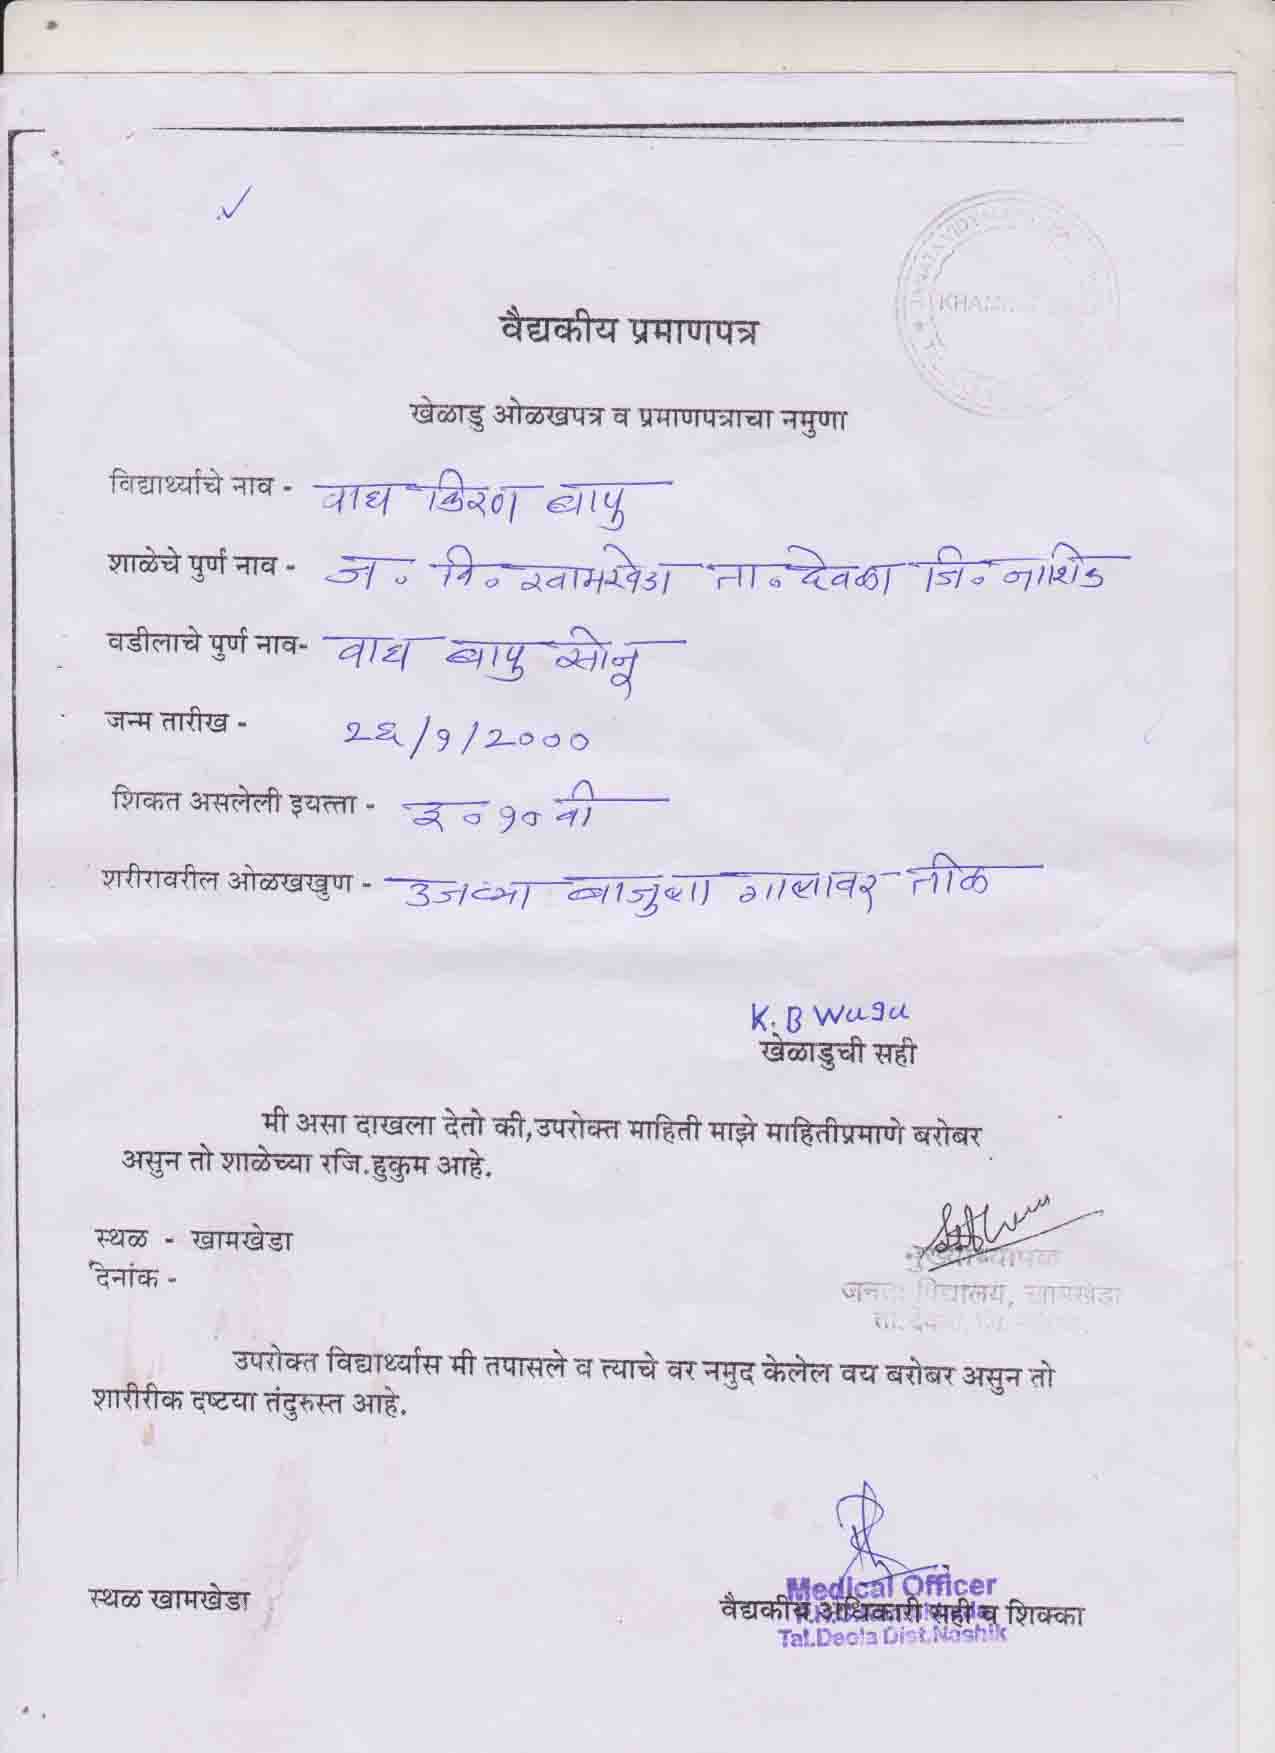 JANATA VIDYA
KHAM
वैद्यकीय प्रमाणपत्र
खेळाडु ओळखपत्र व प्रमाणपत्राचा नमुणा
विद्यार्थ्याचे नाव - वाघ किरण बापु
शाळेचे पुर्ण नाव - ज. वि. खामखेडा ता. देवळा जि. नाशिक
वडीलाचे पुर्ण नाव- वाघ बापु सोनू
जन्म तारीख - २६/१/२०००
शिकत असलेली इयत्ता - इ. १० वी
शरीरावरील ओळखखुण - उजव्या बाजुला गालावर तीळ
K. B Wagh
खेळाडुची सही
मी असा दाखला देतो की,उपरोक्त माहिती माझे माहितीप्रमाणे बरोबर
असुन तो शाळेच्या रजि.हुकुम आहे.
स्थळ - खामखेडा
दिनांक -
मुख्याध्यापक
जनता विद्यालय, खामखेडा
ता. देवळा, जि.
उपरोक्त विद्यार्थ्यास मी तपासले व त्याचे वर नमुद केलेल वय बरोबर असुन तो
शारीरीक दष्टया तंदुरुस्त आहे.
Medical Officer
स्थळ खामखेडा
वैद्यकीय अधिकारी सही व शिक्का
Tal.Deola Dist.Nashik